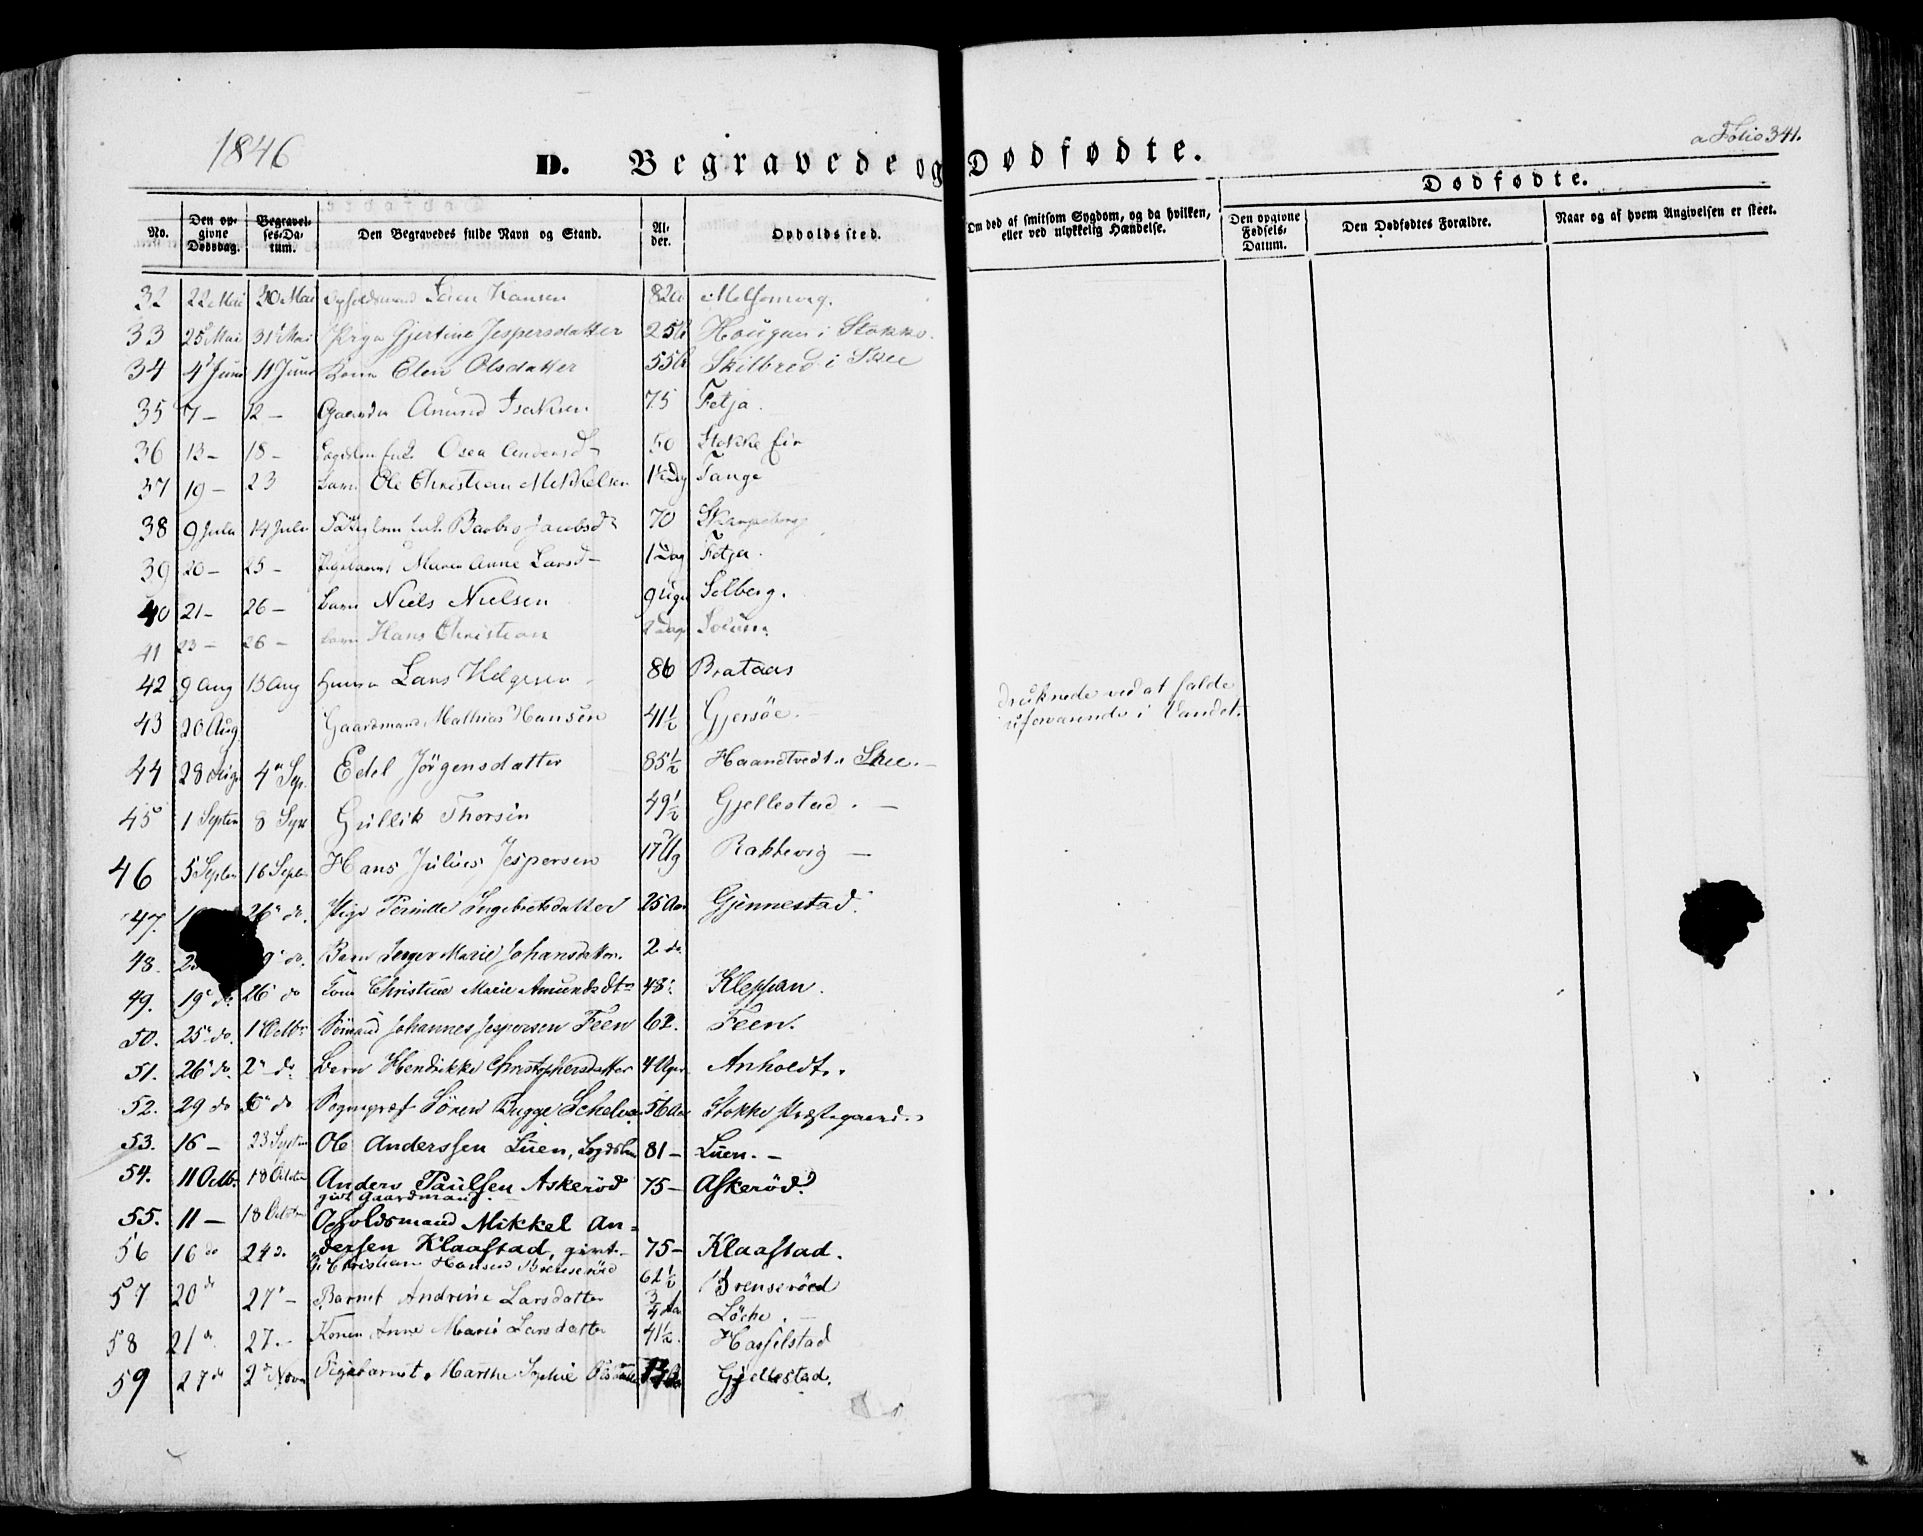 1846
a Folio 341.
D. Begravede og Dødfødte.
Dødfødte.
No. Den opgivne Dødsdag. Begravelses-Datum. Den Begravedes fulde Navn og Stand. Alder. Opholdssted. Om død af smitsom Sygdom, og da hvilken, eller ved ulykkelig Hændelse. Den opgivne Fødsels-Datum. Den Dødfødtes Forældre. Naar og af hvem Angivelsen er skeet.
32 22 Mai 30 Mai Hansen 82
33 25 Mai 31 Mai Gjertine Jespersdatter 25 Hougan i Stokke
34 4 Juni 11 Juni Kone Elen Olsdatter 55 Skilbred i Skee
35 7 - 12 - Anund Isaksen 75 Fetja.
36 13 - 18 - Osea Andersd - 50 Stokke
37 19 - 23 Barn Ole Christian Mikkelsen Tange
38 9 Juli 14 Juli Jacobsd 70
39 20 - 25 - Pigebarnet Maren Anne Larsd - 1 Dag Fetja.
40 21 - 26 - Barn Niels Nielsen 9 Uger Solberg.
41 23 - 26 - Barn Hans Christian Solum
42 9 Aug 13 Aug Lars Helgesen 86 Brataas
43 20 Aug Gaardmand Mathias Hansen 41½ Gjersøe. druknede ved at falde
uforvarende i Vandet.
44 28 Aug 4 Sep. Edel Jörgensdatter 85½ Haandtvedt i Skee. -
45 1 Septem 8 Sept Gullik Thorsen 49½ Gjellestad. -
46 5 Septem 16 Septem Hans Julius Jespersen 17 Ug Rakkevig -
47. 26 do. Pige Pernille Ingebretsdatter 25 Aar Gjennestad.
48. do. Barn Inger Marie Johansdatter. 2 do
49. 19 do 26 do Christine Marie Amundsdt 48 Kleppan.
50. 25 do. 1 Octbr Sömand Johannes Jespersen Feen 62. Feen.
51. 26 do. 2 do Barn Hendrikke Christophersdatter 4 Uger Anholdt.
52. 29 do do Sognepræst Sören Bugge 56 Aar Stokke Præstegaard.
53. 16 - 23 Septem Ole Anderssen Luen, 81 - Luen. -
54. 11 Octb. 18 Octbr Anders Paulsen Askeröd 75 - Askeröd.
givt Gaardmand.
55. 11 - 18 Octbr Opholdsmand Mikkel An-
56 16 do 24 do dersen Klaastad, givt - 75 - Klaastad.
Christian Hansen Brenseröed 62½ Brenseröed
57 20 do 27 - Barnet Andrine Larsdatter ¾ Aar Löche.
58 21 do. 27. - Konen Anne Marie Larsdatter 41½. Hasselstad
59 27 do 2 Novm Pigebarnet Marthe Sophie Gjellestad.